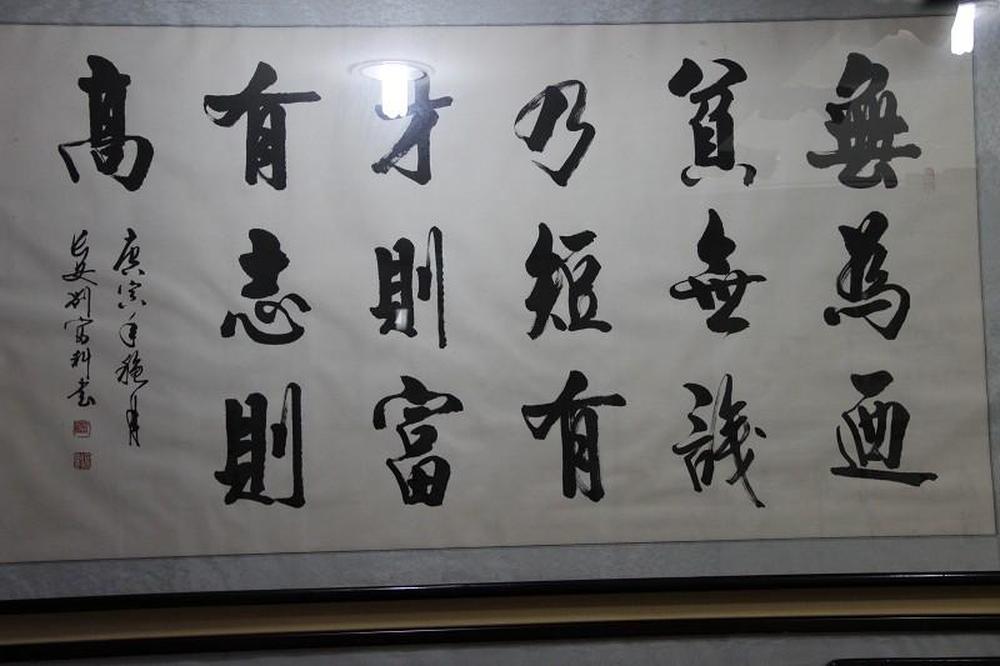 無為迺
貧無識
乃短有
才則富
有志則
髙
庚寅年穐月
长安刘富科书